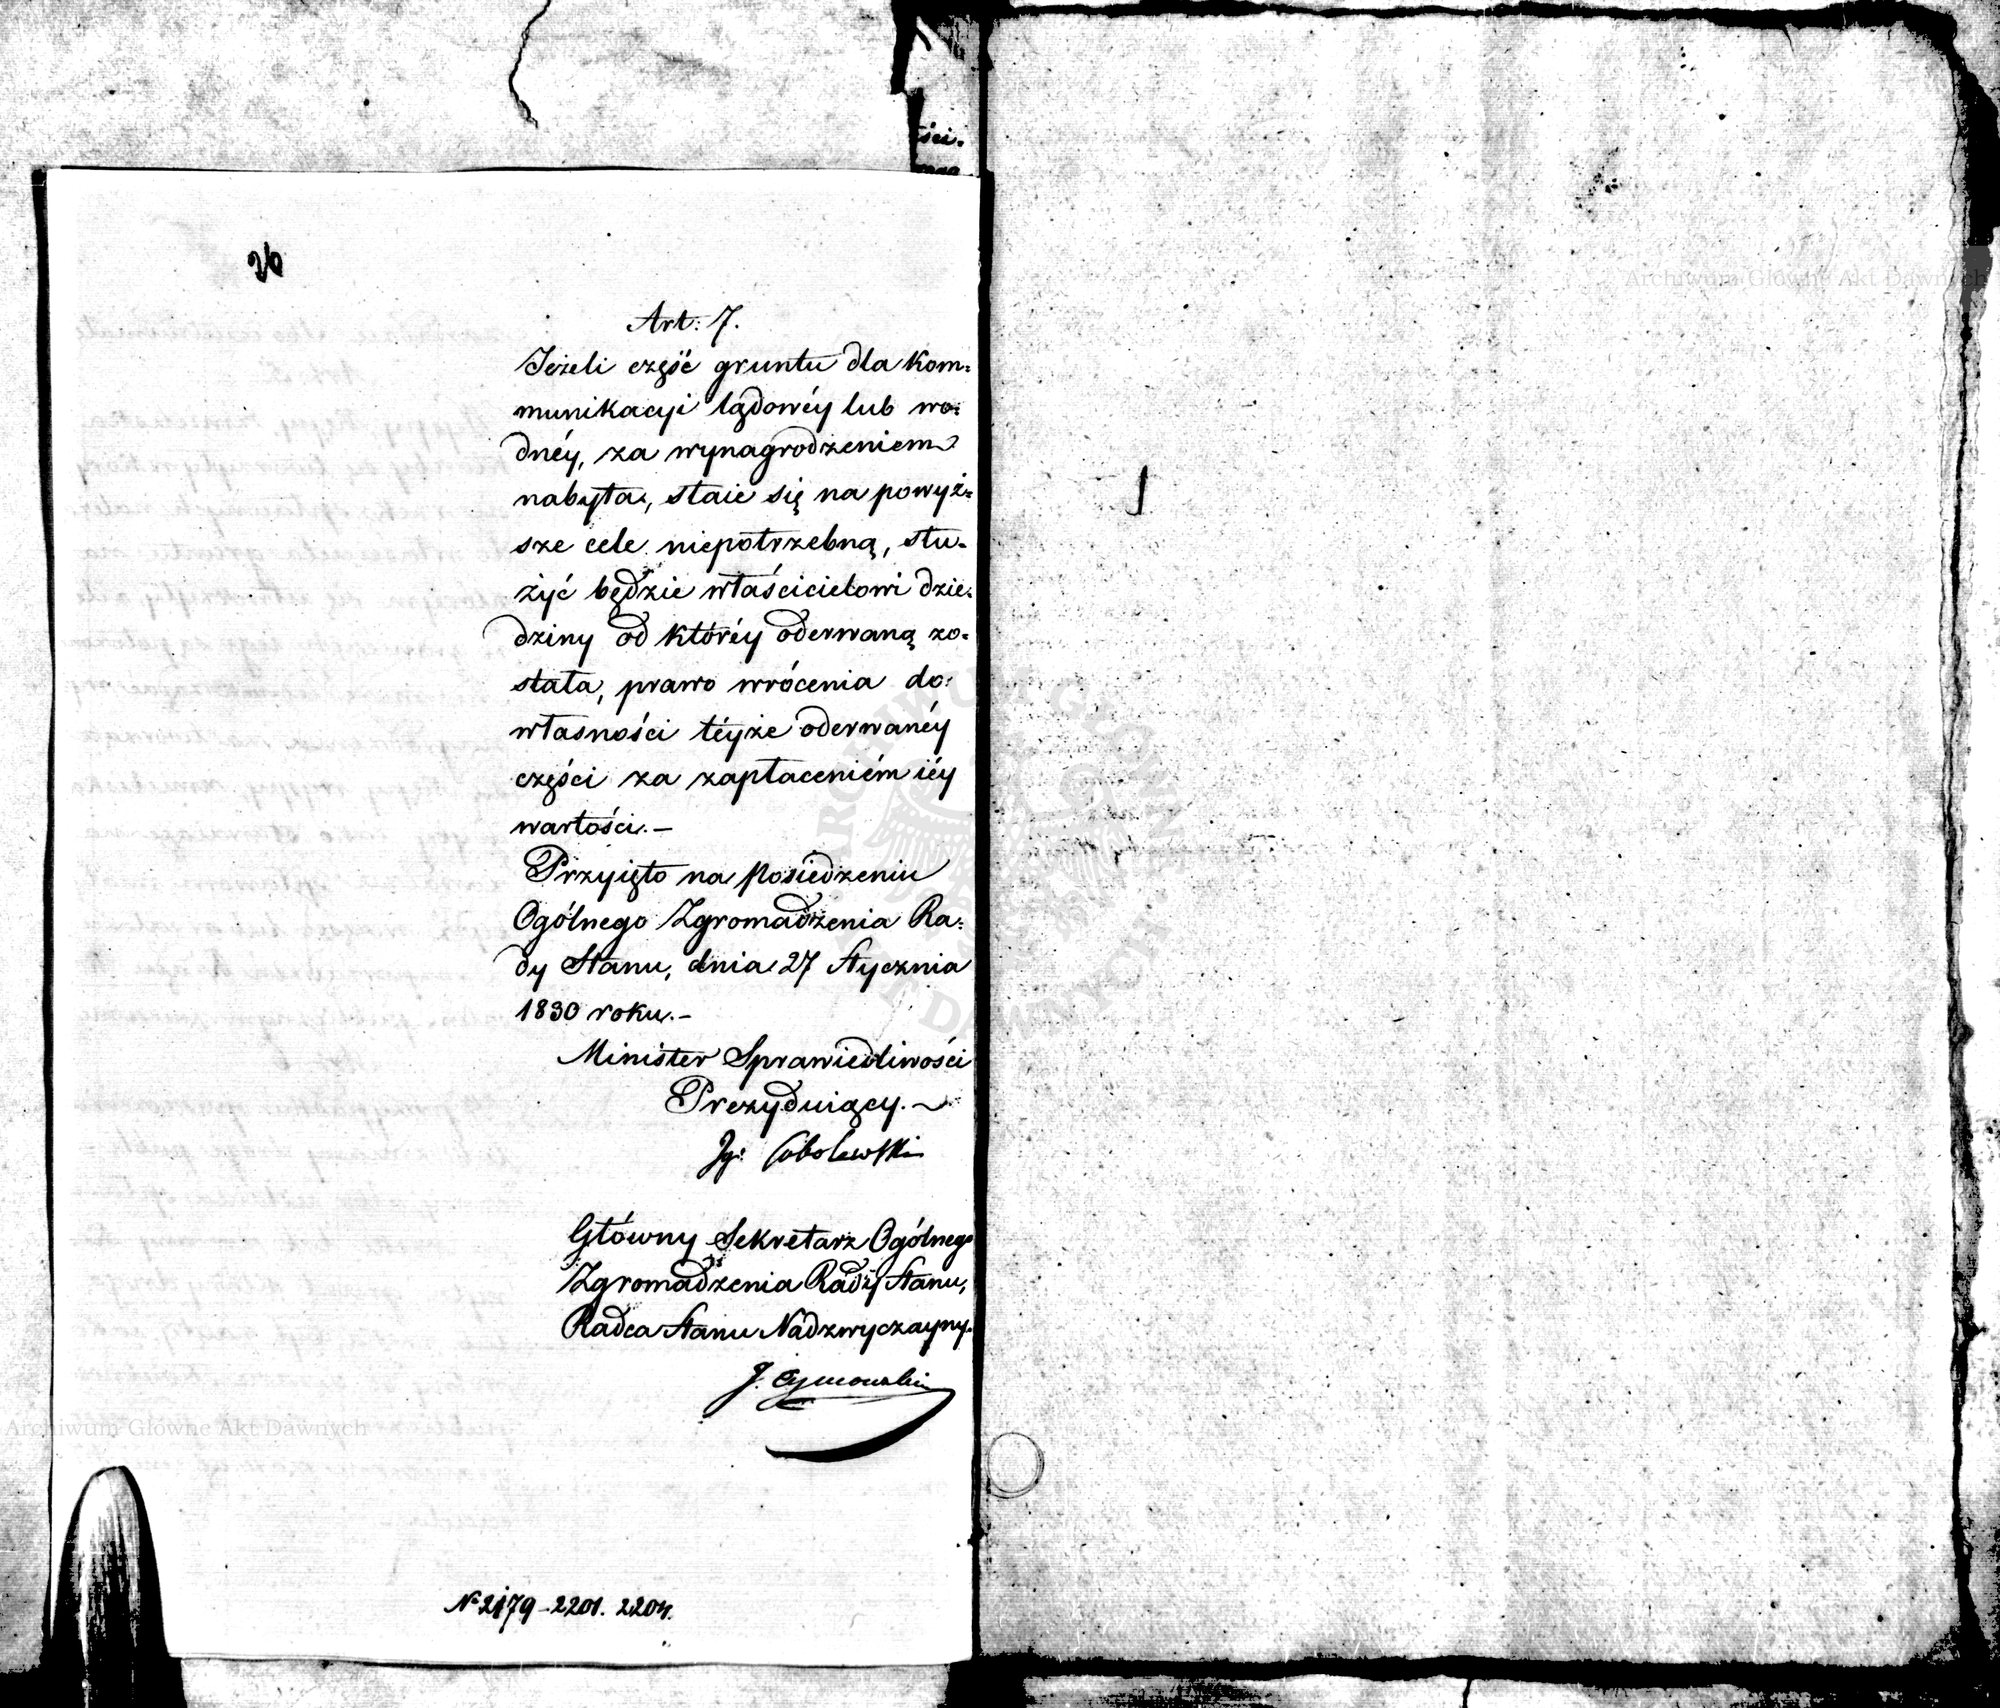 ści.
26
Art: 7.
Jeżeli część gruntu dla kom:
munikacyi lądowéy lub wo:
dnéy, za wynagrodzeniem
nabyta, staie się na powyż:
sze cele niepotrzebną, słu:
żyć będzie właścicielowi dzie:
dziny od któréy oderwaną zo:
stała, prawo wrócenia do
własności téyże oderwanéy
części za zapłaceniém iéy
wartości.—
Przyięto na Posiedzeniu
Ogólnego Zgromadzenia Ra:
dy Stanu, dnia 27 Stycznia
1830 roku.—
Minister Sprawiedliwości
Prezyduiący.—
Ig: Sobolewski
Główny Sekretarz Ogólnego
Zgromadzenia Rady Stanu,
Radca Stanu Nadzwyczayny.
J.
№ 2179-2201. 2204.
Archiwum Główne Akt Dawnych
Archiwum Główne Akt Dawnych
ARCHIWUM GŁÓWNE AKT DAWNYCH